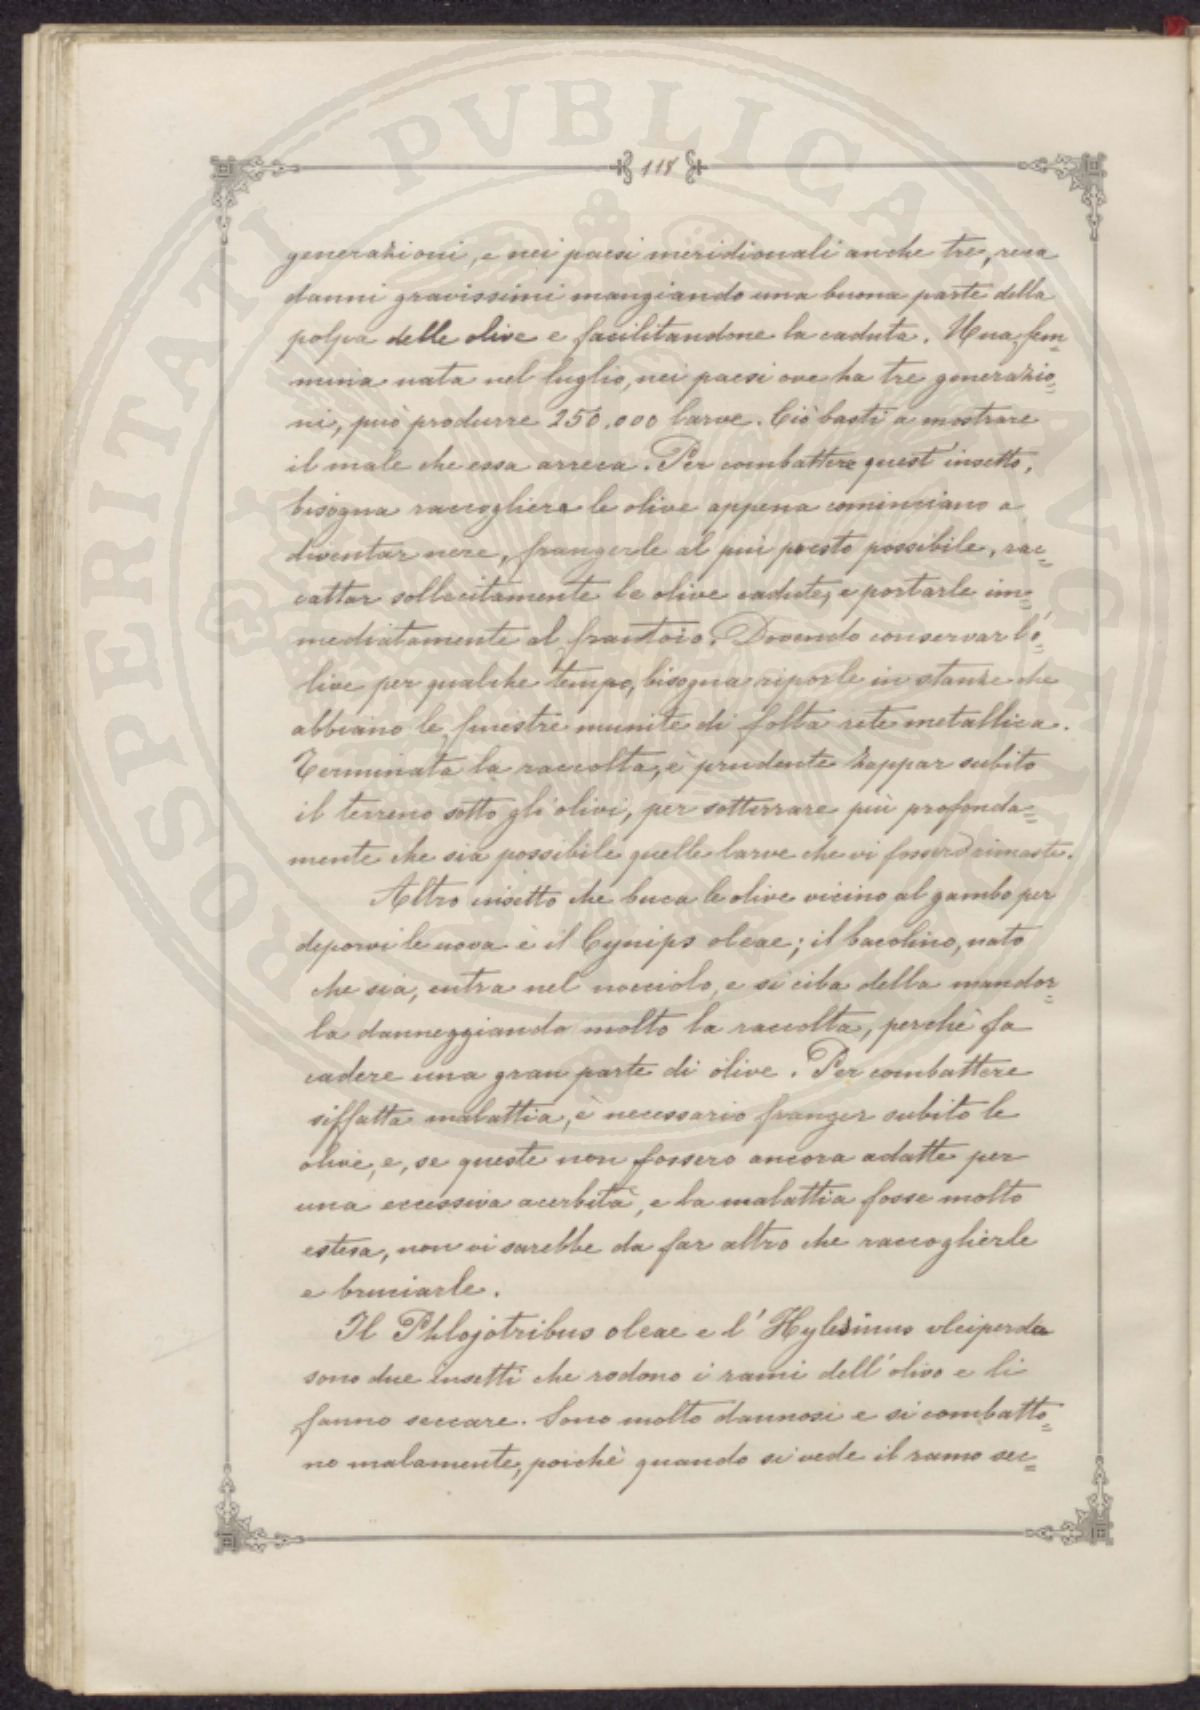 118
generazioni, e nei paesi meridionali anche tre, reca
danni gravissimi mangiando una buona parte della
polpa delle olive e facilitandone la caduta. Una fem=
mina nata nel luglio, nei paesi ove ha tre generazio=
ni, può produrre 250.000 larve. Ciò basti a mostrare
il male che essa arreca. Per combattere quest'insetto,
bisogna raccogliere le olive appena cominciano a
diventar nere, frangerle al più presto possibile, rac=
cattar sollecitamente le olive cadute, e portarle im=
mediatamente al frantoio. Dovendo conservar l'o=
live per qualche tempo, bisogna riporle in stanze che
abbiano le finestre munite di folta rete metallica.
Terminata la raccolta, è prudente zappar subito
il terreno sotto gli olivi, per sotterrare più profonda=
mente che sia possibile quelle larve che vi fossero rimaste.
Altro insetto che buca le olive vicino al gambo per
deporvi le uova è il Cynips oleae; il bacolino, nato
che sia, entra nel nocciolo, e si ciba della mandor=
la danneggiando molto la raccolta, perchè fa
cadere una gran parte di olive. Per combattere
siffatta malattia, è necessario franger subito le
olive, e, se queste non fossero ancora adatte per
una eccessiva acerbità, e la malattia fosse molto
estesa, non vi sarebbe da far altro che raccoglierle
e bruciarle.
Il Phlojotribus oleae e l'Hylesinus oleiperda
sono due insetti che rodono i rami dell'olivo e li
fanno seccare. Sono molto dannosi e si combatto=
no malamente, poichè quando si vede il ramo sec=
PROSPERITATI PVBLICAE AVGENDAE